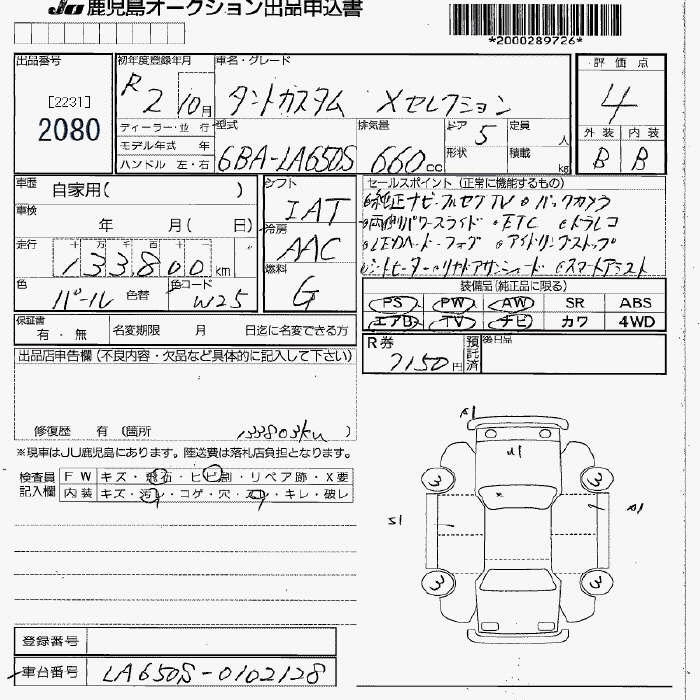 JU 鹿児島オークション出品申込書
*2000289726*
出品番号
[2231]
2080
初年度登録年月
R2 10月
車名・グレード
タントカスタム Xセレクション
評価点
4
外装 内装
B B
ディーラー・並行
モデル年式 年
ハンドル 左・右
型式
6BA-LA650S
排気量
660cc
ドア 5
形状
定員 人
積載 kg
車歴 自家用( )
車検 年 月( 日)
走行 十万千百十
133800km
色 パール 色替
色コード W25
シフト IAT
冷房 AAC
燃料 G
セールスポイント(正常に機能するもの)
●純正ナビ・フルセグTV ●バックカメラ
●両側パワースライド ●ETC ●ドラレコ
●LEDヘッド・フォグ ●アイドリングストップ
●シートヒーター ●リヤドアサンシェード ●スマートアシスト
装備品(純正品に限る)
PS PW AW SR ABS
エアB TV ナビ カワ 4WD
保証書 有・無
名変期限 月 日迄に名変できる方
R券 7150円
預託済
後日品
出品店申告欄(不良内容・欠品など具体的に記入して下さい)
修復歴 有(箇所 133803km )
※現車はJU鹿児島にあります。陸送費は落札店負担となります。
検査員記入欄
FW キズ・飛石・ヒビ割・リペア跡・X要
内装 キズ・汚れ・コゲ・穴・スレ・キレ・破レ
A1
U1
S1
A1
3
3
3
3
登録番号
車台番号 LA650S-0102128